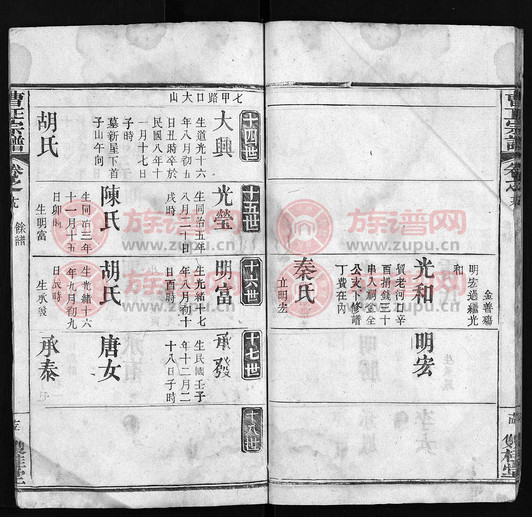 曹氏宗譜
卷之
金善瑞
明宏過繼光
和
光和
賀老河口辛
酉捐錢三十
串入祠堂全
公支下修譜
丁費在內
秦氏
立明宏
明宏
雙桂堂
七甲路口大山
十四世
大興
生道光十六
年八月初五
日丑時卒於
民國八年十
一月十七日
子時
墓新屋下首
子山午向
胡氏
十五世
光瑩
生同治五年
八月二十日
戌時
陳氏
生同治三年
十一月十五
日卯時
生明富
十六世
明富
生光緒十七
年八月初十
日酉時
胡氏
生光緒十六
年九月初九
日辰時
生承發
十七世
承發
生民國壬子
年十二月二
十八日子時
唐女
承泰
十八世
曹氏宗譜
卷之
餘譜
雙桂堂
族谱网
www.zupu.cn